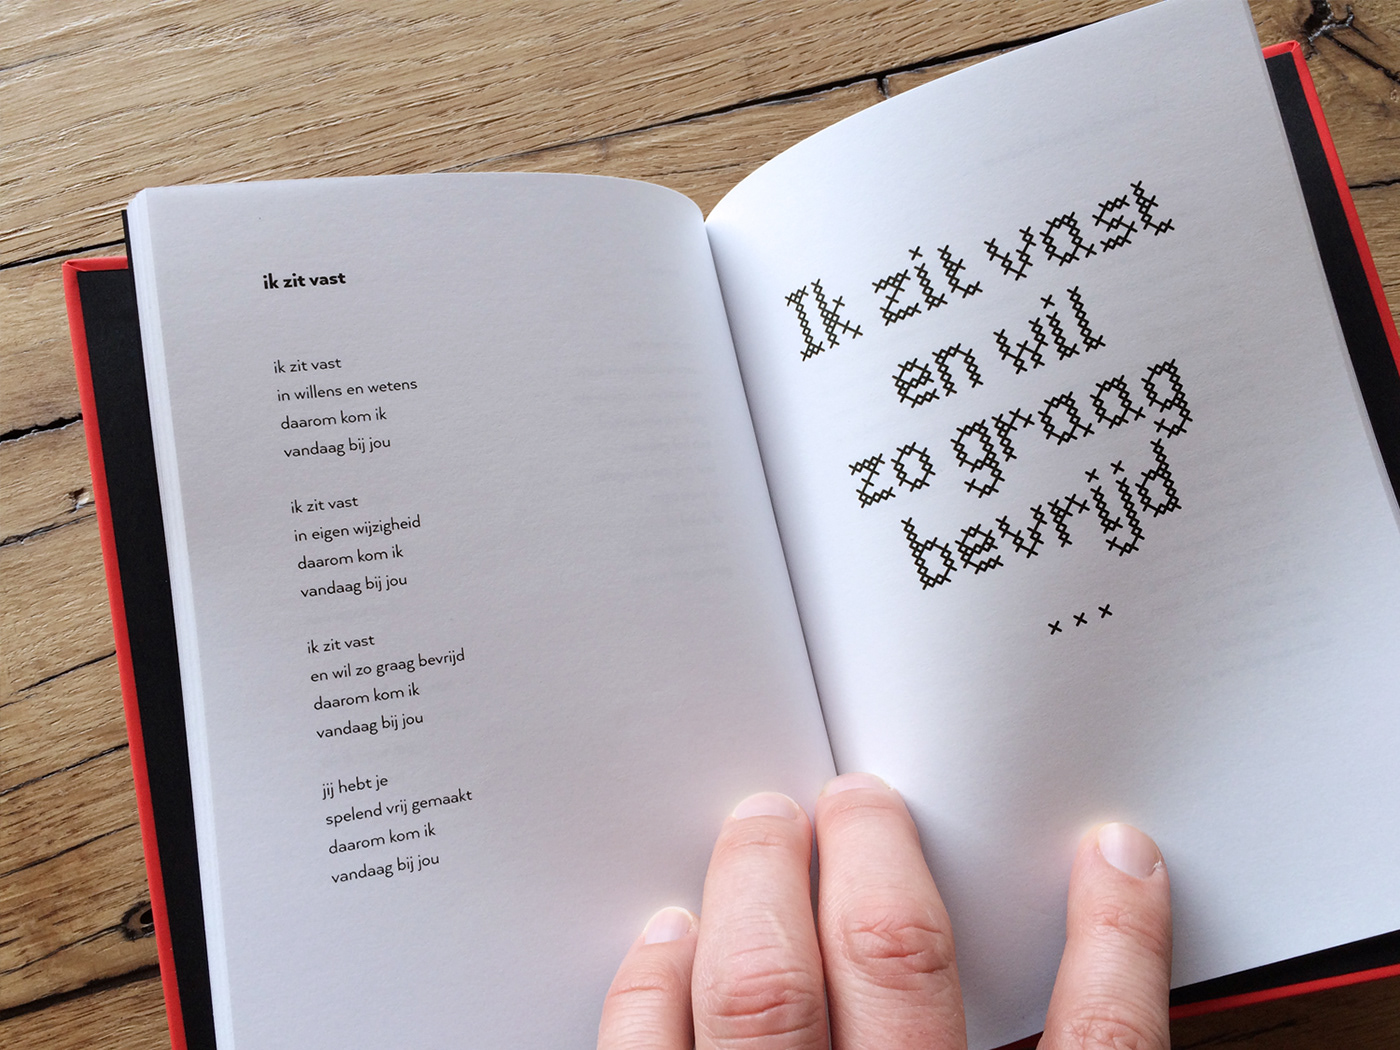 ik zit vast
ik zit vast
in willens en wetens
daarom kom ik
vandaag bij jou
ik zit vast
in eigen wijzigheid
daarom kom ik
vandaag bij jou
ik zit vast
en wil zo graag bevrijd
daarom kom ik
vandaag bij jou
jij hebt je
spelend vrij gemaakt
daarom kom ik
vandaag bij jou
Ik zit vast
en wil
zo graag
bevrijd
...